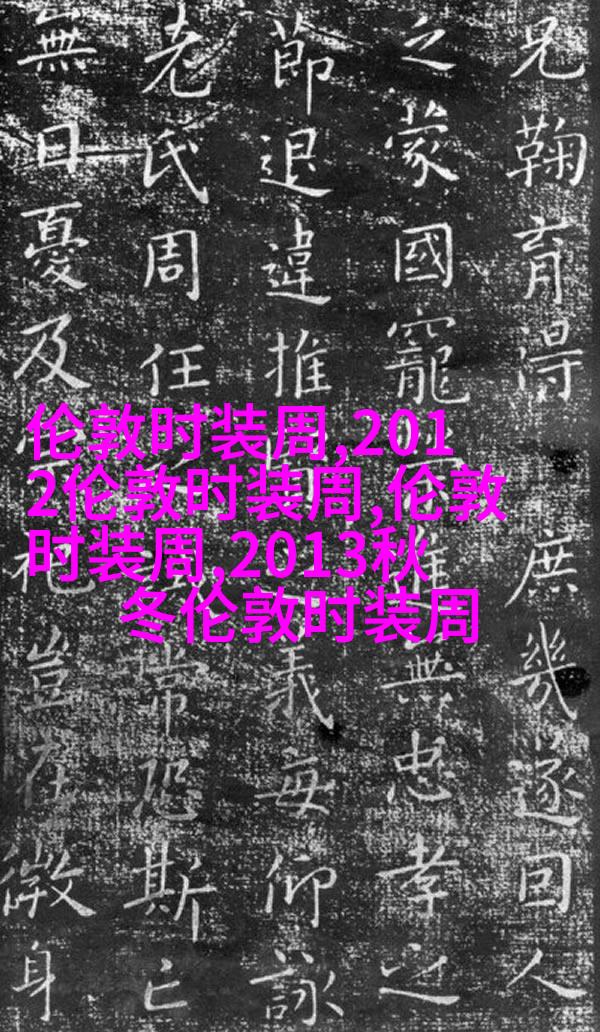 兄鞠育得庶幾遂回人
之蒙國寵進無忠孝之
節退違推義每仰詠
老氏周任常恐斯亡
無日憂及祀豈在微身
伦敦时装周,201
2伦敦时装周,伦敦
时装周,2013秋
冬伦敦时装周